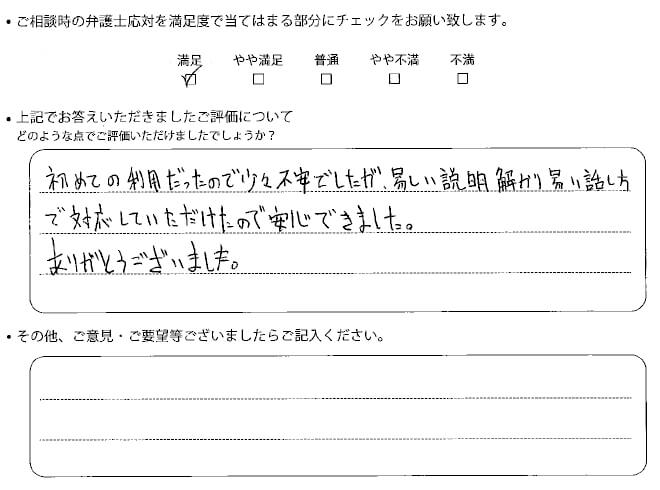 ・ご相談時の弁護士応対を満足度で当てはまる部分にチェックをお願い致します。
満足 やや満足 普通 やや不満 不満
☑ □ □ □ □
・上記でお答えいただきましたご評価について
どのような点でご評価いただけましたでしょうか？
初めての利用だったので少々不安でしたが、易しい説明 解かり易い話し方
で対応していただけたので安心できました。
ありがとうございました。
・その他、ご意見・ご要望等ございましたらご記入ください。